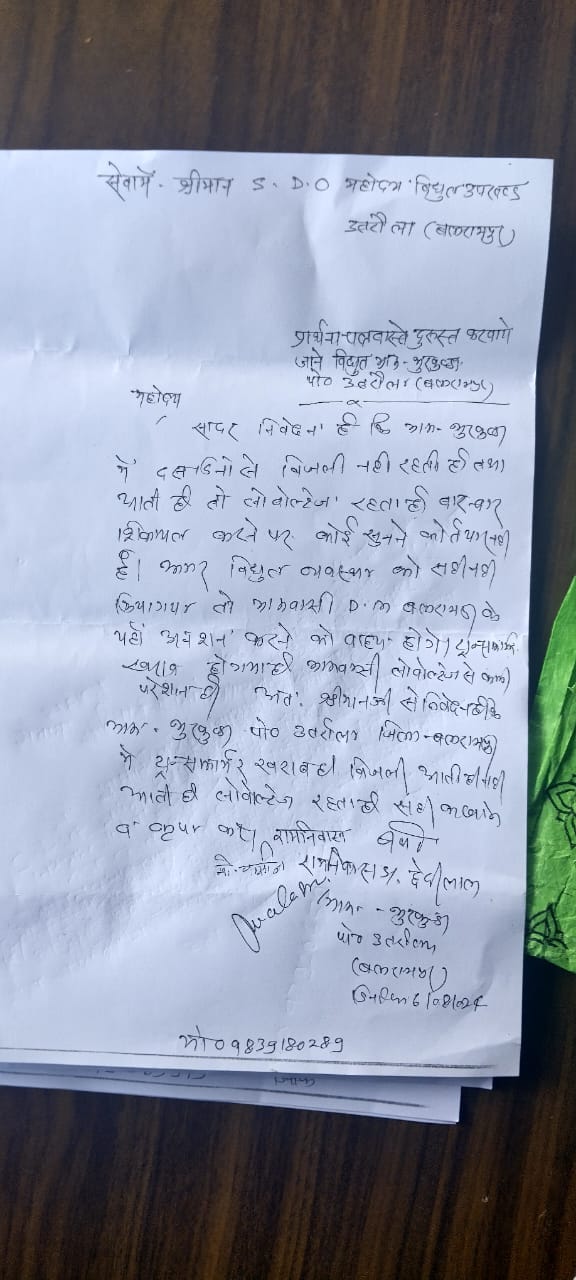 सेवामें - श्रीमान S. D. O महोदय विद्युत उपखण्ड
उतरौला (बलरामपुर)
प्रार्थना-पत्र वास्ते दुरुस्त करवाये
जाने विद्युत
पो० उतरौला (बलरामपुर)
महोदय
सादर निवेदन है कि ग्राम-
में दस दिनो से बिजली नही रहती है तथा
आती है तो लोवोल्टेज रहता है बार-बार
शिकायत करने पर कोई सुनने को तैयार नही
है। अगर विद्युत व्यवस्था को सही नही
किया गया तो ग्रामवासी D.M बलरामपुर के
यहाँ अनशन करने को वाध्य होगे। ट्रान्सफार्मर
खराब हो गया है ग्रामवासी लोवोल्टेज से काफी
परेशान है अतः श्रीमानजी से निवेदन है कि
ग्राम- पो० उतरौला जिला-बलरामपुर
मे ट्रान्सफार्मर खराब है बिजली आती है नही
आती है लोवोल्टेज रहता है सही करवाने
व कृपा करे। रामनिवास
रामनिवास S/. देवीलाल
ग्राम -
पो० उतरौला
(बलरामपुर)
दिनांक 6/08/024
मो० 9839180289